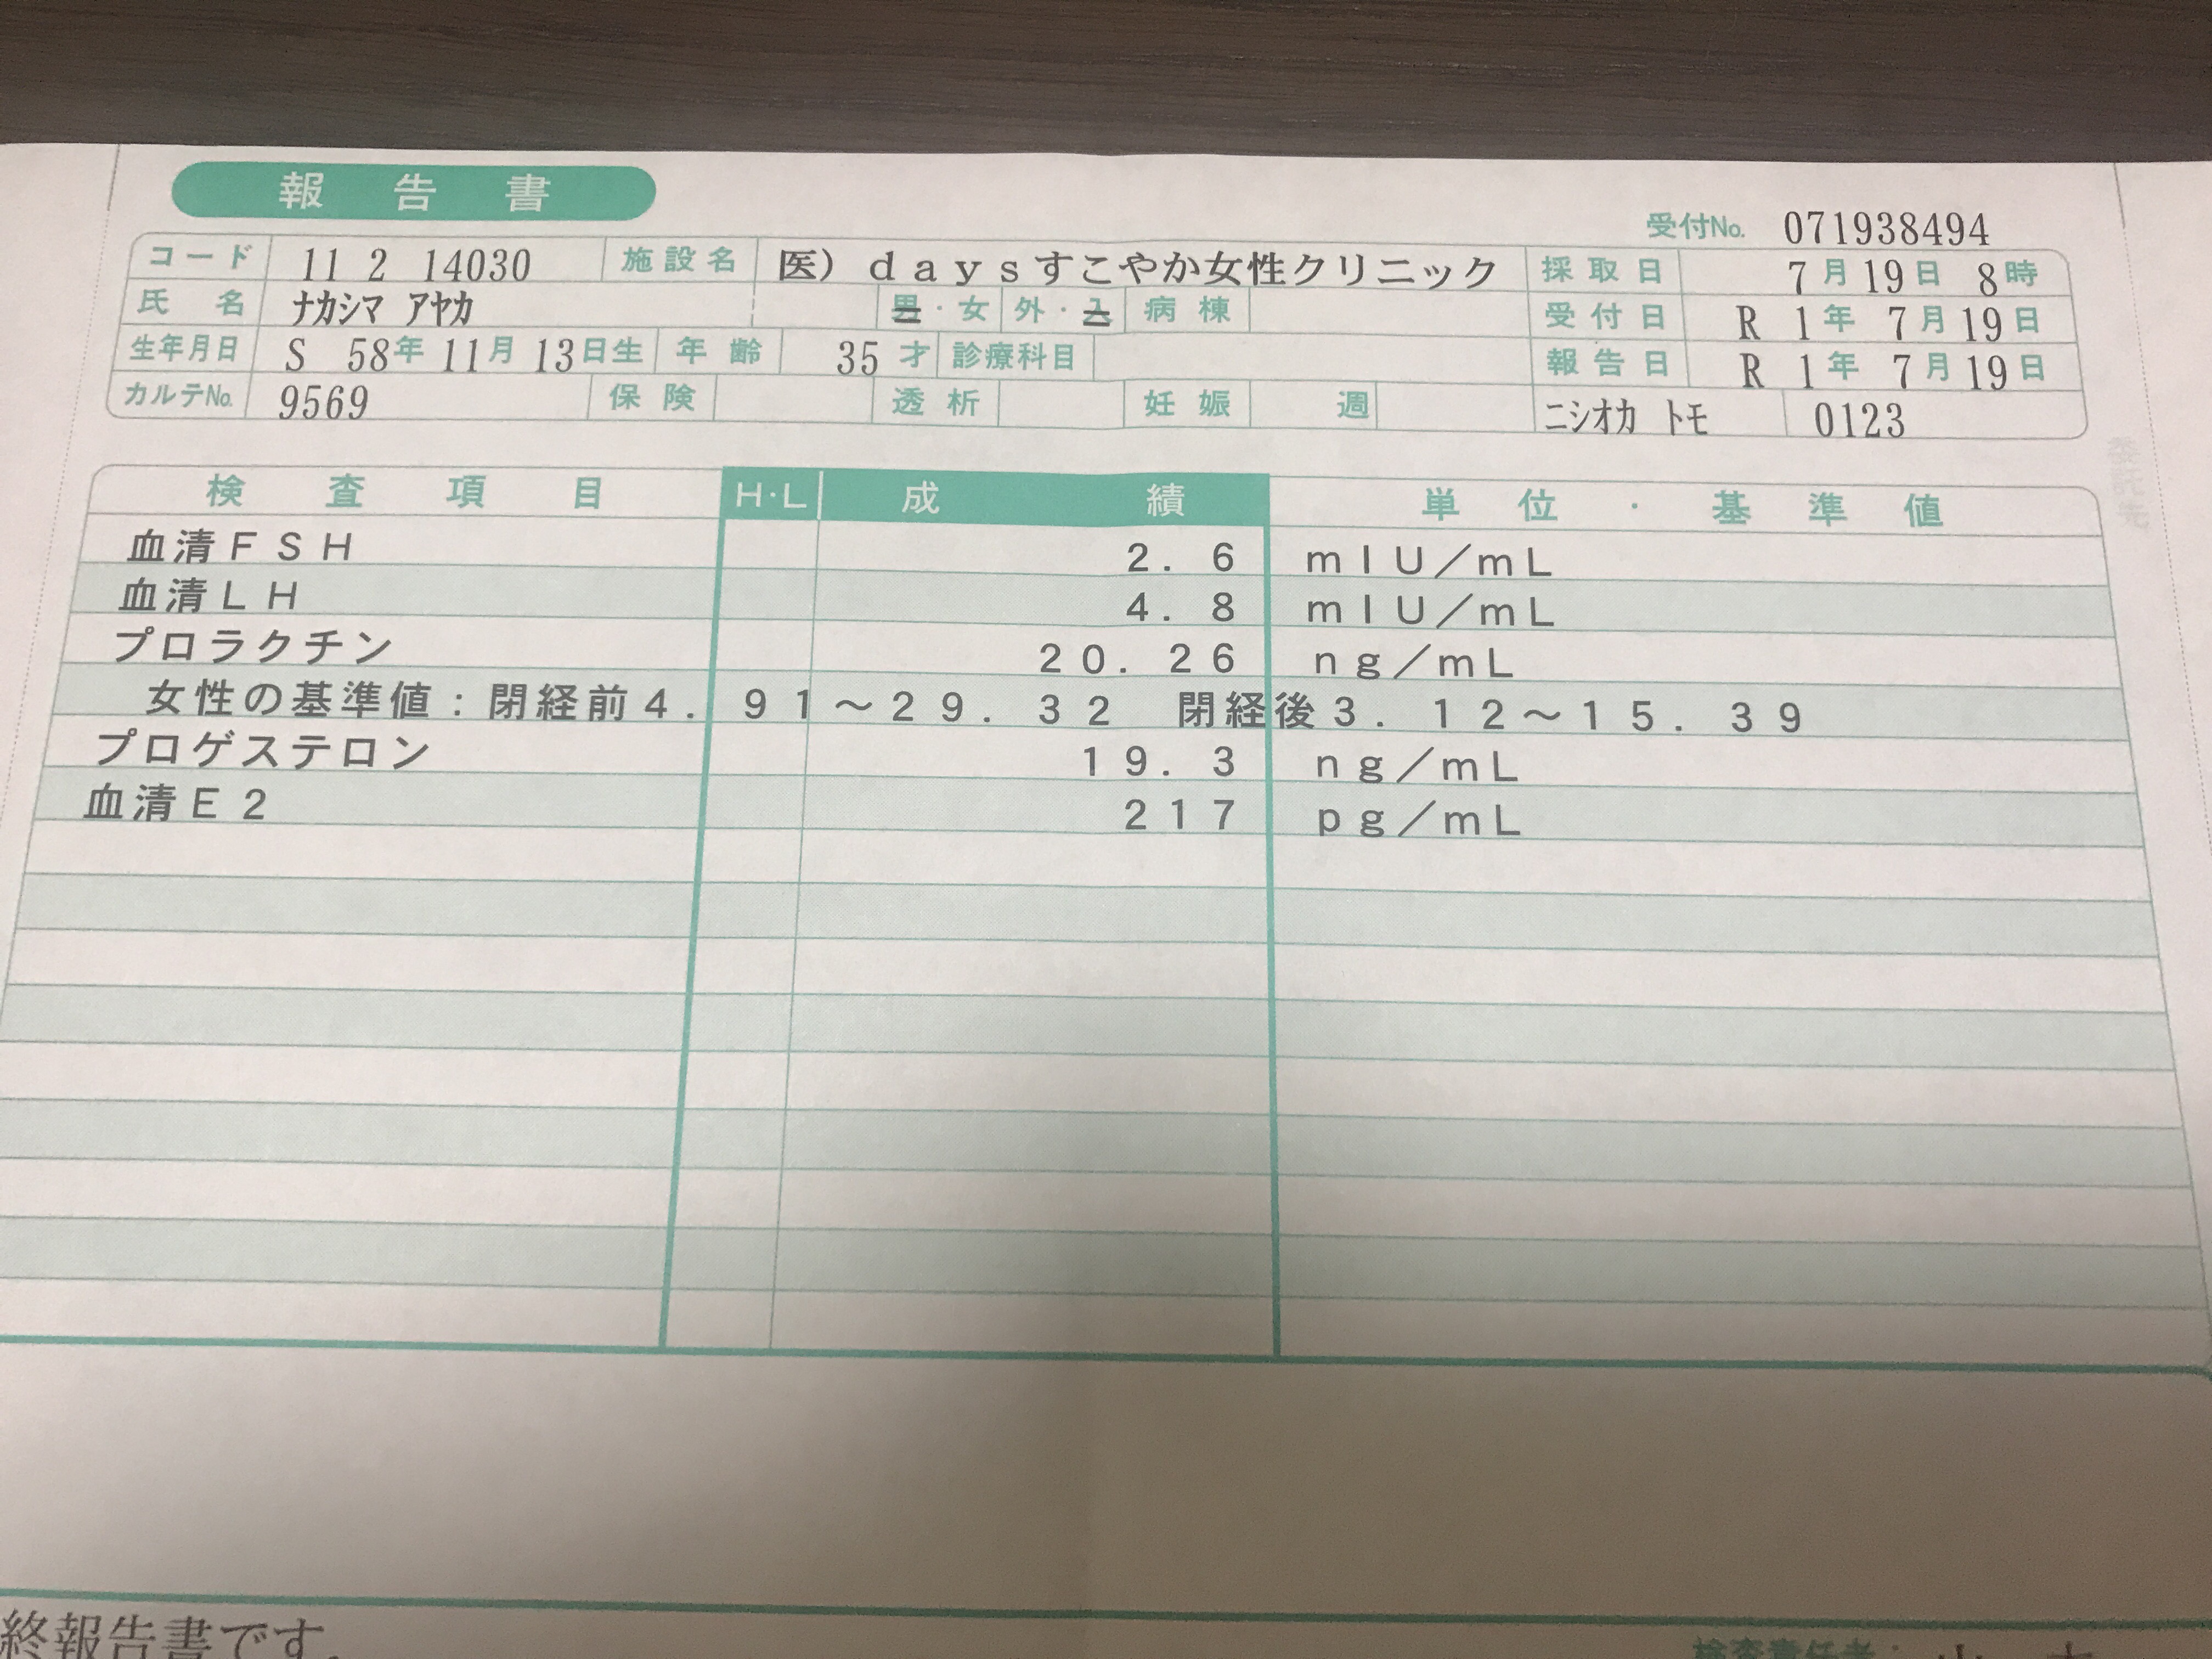 報告書
受付No. 071938494
コード 11 2 14030 施設名 医）ｄａｙｓすこやか女性クリニック 採取日 7月19日 8時
氏名 ナカシマ アヤカ 男・女 外・入 病棟 受付日 R 1年 7月19日
生年月日 S 58年 11月 13日生 年齢 35才 診療科目 報告日 R 1年 7月19日
カルテNo. 9569 保険 透析 妊娠 週 ニシオカ トモ 0123
検査項目 H·L 成績 単位・基準値
血清ＦＳＨ ２．６ ｍＩＵ／ｍＬ
血清ＬＨ ４．８ ｍＩＵ／ｍＬ
プロラクチン ２０．２６ ｎｇ／ｍＬ
女性の基準値：閉経前４．９１～２９．３２ 閉経後３．１２～１５．３９
プロゲステロン １９．３ ｎｇ／ｍＬ
血清Ｅ２ ２１７ ｐｇ／ｍＬ
委託先
終報告書です.
検査責任者：